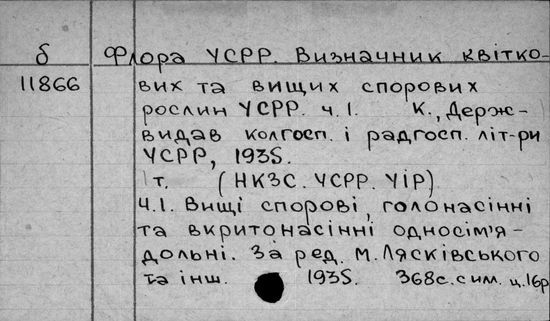 б Флора УСРР. Визначник квітко-
11866 вих та вищих спорових
рослин УСРР. ч.1. К., Держ-
видав колгосп. і радгосп. літ-ри
УСРР, 1935.
1т. (НКЗС. УСРР. УІР)
Ч.1. Вищі спорові, голонасінні
та вкритонасінні односім'я-
дольні. За ред. М. Лясківського
та інш. 1935. 368с. с ил. ц. 16р